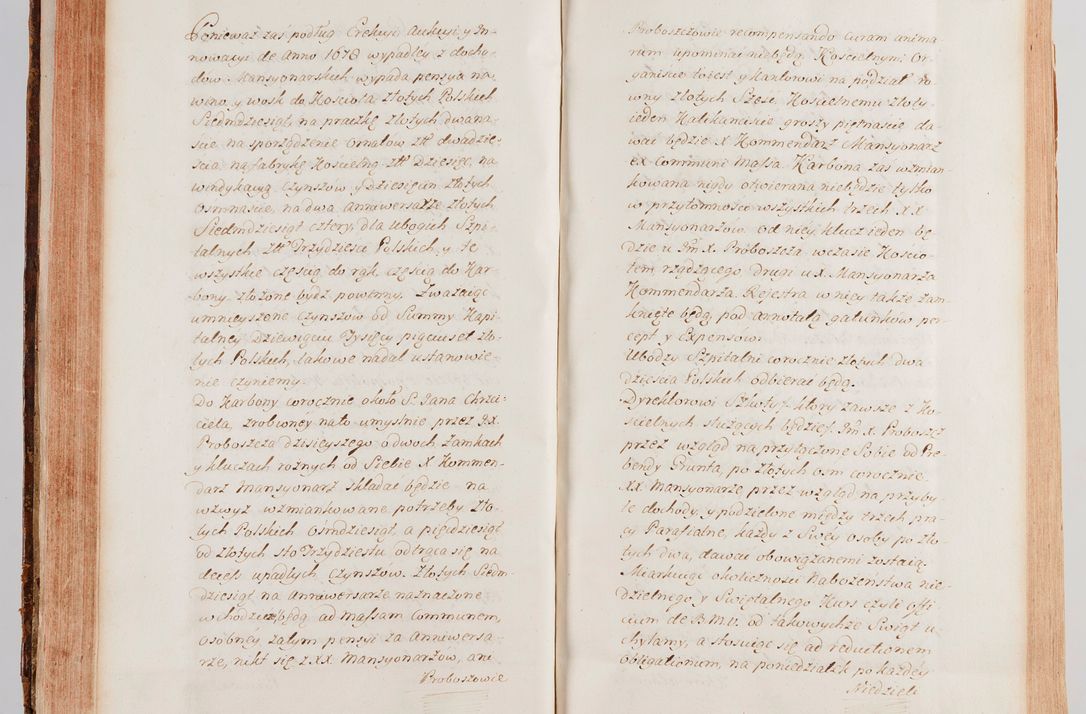 Ponieważ zaś podług Erekcyi Aukcyi y In-
nowacyi de Anno 1678 wypadłey z docho-
dow Mansyonarskich wypada pensya na
wino y wosk do Kościoła Złotych Polskich
Siedmdziesiąt, na praczkę złotych dwana-
ście na sporządzenie Ornatow złł dwadzie-
ścia na fabrykę Kościelną złł Dziesięć, na
windykacyą Czynszow y dziesięcin złotych
Osmnaście, na dwa anniwersarze złotych
Siedmdziesiąt cztery, dla Ubogich Szpi-
talnych złł Trzydzieści Polskich, y te
wszystkie częścią do rąk częścią do Kar-
bony złożone bydź powinny. Zważaiąc
umnieyszone Czynszow od Summy Kapi-
talney Dziewięciu Tysięcy pięciuset zło-
tych Polskich, takowe nadal ustanowie-
nie czyniemy.
Do Karbony corocznie około S. Jana Chrzci-
ciela, zrobioney na to umyślnie przez JX.
Proboszcza dzisieyszego o dwoch zamkach
y kluczach rożnych od Siebie X Kommen-
darz Mansyonarz składać będzie na
wzwyż wzmiankowane potrzeby Zło-
tych Polskich Osmdziesiąt, a pięćdziesiąt
od złotych sto Trzydziestu odtrąca się na
deces upadłych Czynszow. Złotych Siedm-
dziesiąt na Anniwersarze naznaczone
wchodzić będą ad massam Communem,
osobney zatym pensyi za Anniwersa-
rze, nikt się z XX. Mansyonarzow, ani
Proboszczowie
Proboszczowie recompensando Curam anima-
rum upominać nie będą. Kościelnym Or-
ganiście to iest y Kantorowi na podział ro-
wny złotych Sześć, Kościelnemu złoty
ieden Kalikanciście groszy piętnaście da-
wać będzie X Kommendarz Mansyonarz
ex Communi Massa. Karbona zaś wzmian-
kowana nigdy otwierana nie będzie tylko
w przytomności wszystkich trzech XX.
Mansyonarzow. Od niey klucz ieden bę-
dzie u Jm X. Proboszcza wczasie Kościo-
łem rządzącego drugi u X. Mansyonarza
Kommendarza. Rejestra w niey także zam-
knięte będą, pod annotatą gatunkow per-
cept y Expensow.
Ubodzy Szpitalni corocznie złotych dwa-
dzieścia Polskich odbierać będą.
Dyrektorowi Szkoły /. ktory zawsze z Ko-
ścielnych służących będzie /. Jm X. Proboszcz
przez wzgląd na przyłączone Sobie od Pre-
bendy Grunta, po złotych osm corocznie
XX. Mansyonarze przez wzgląd na przyby-
łe dochody, y podzielone między trzech pra-
cy Parafialne, każdy z Swey osoby po zło-
tych dwa, dawać obowiązanemi zostaią.
Miarkuiąc okoliczności Nabożeństwa nie-
dzielnego y Swiętalnego Kurs czyli offi-
cium de B.M.V. od takowychże Swiąt u-
chylamy, a stosuiąc się ad reductionem
obligationum, na poniedziałek po każdey
Niedzieli